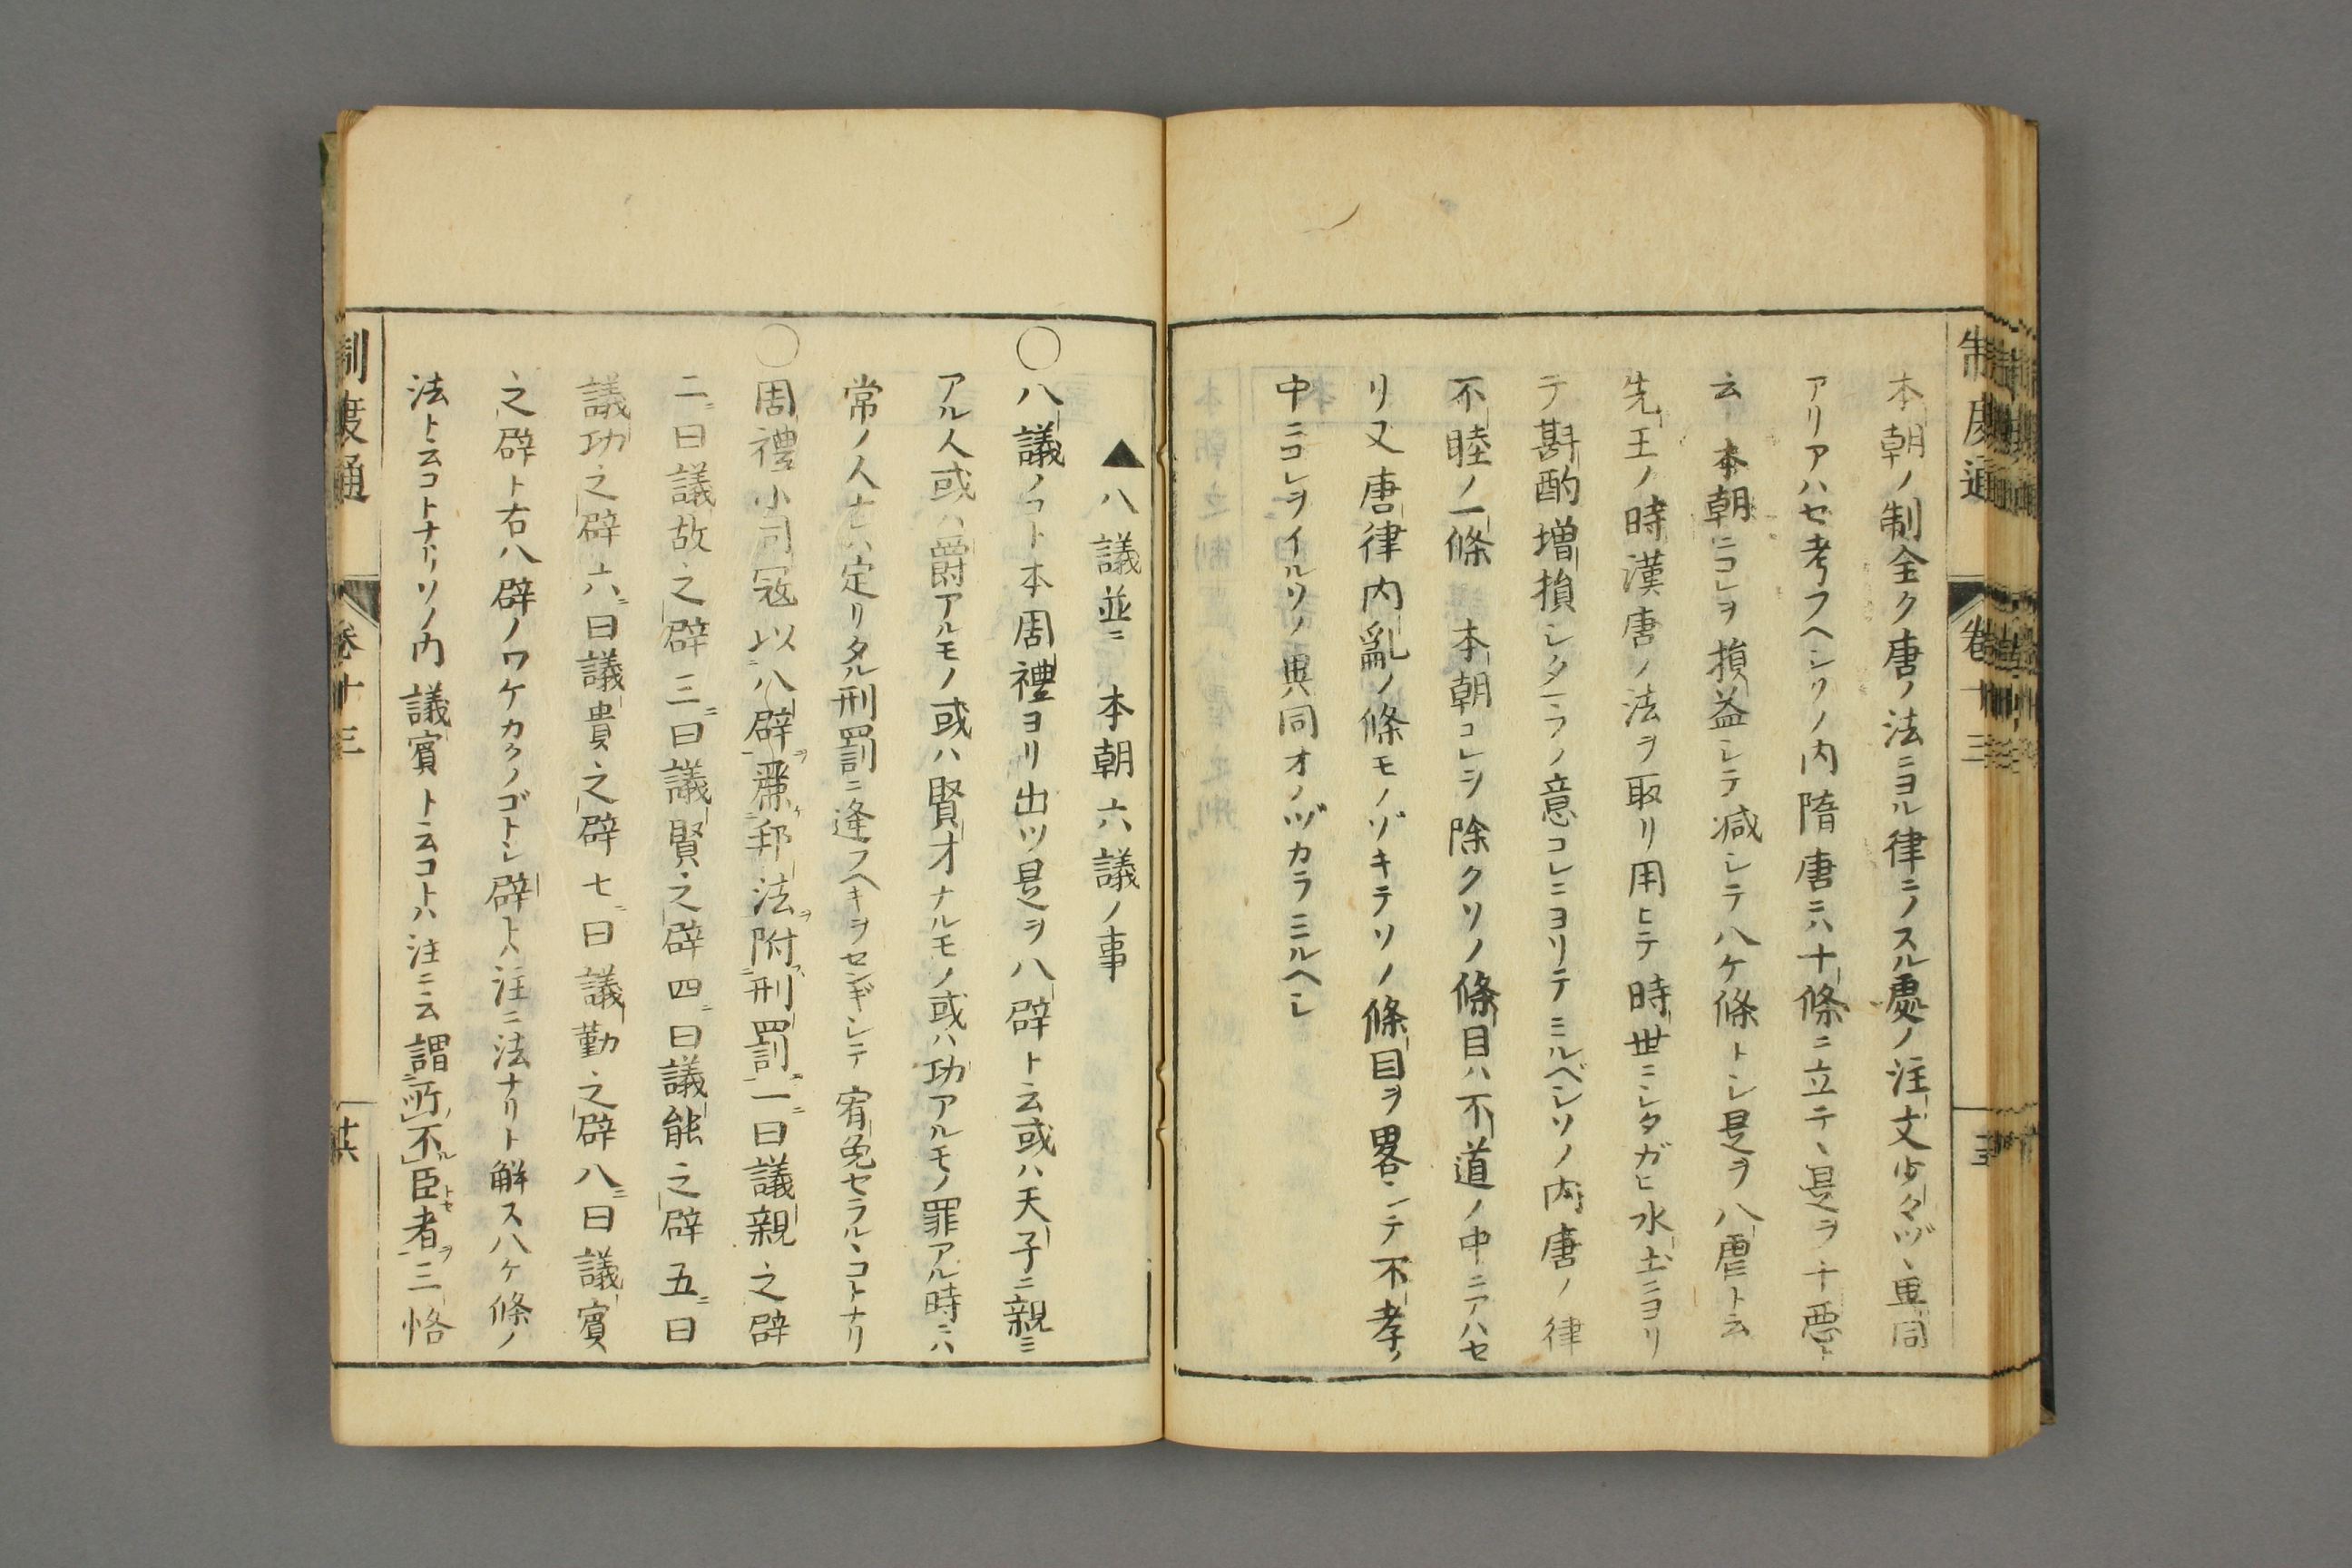 制度通 卷十三
本朝ノ制全ク唐ノ法ニヨル律ニノスル處ノ注文少々ヅヽ異同
アリアハセ考フヘシソノ内隋唐ニハ十條ニ立テヽ是ヲ十惡ト
云 本朝ニコレヲ損益シテ減シテ八ケ條トシ是ヲ八虐ト云
先王ノ時漢唐ノ法ヲ取リ用ヒテ時世ニシタガヒ水土ニヨリ
テ斟酌増損シタマフノ意コレニヨリテミルベシソノ内唐ノ律
不睦ノ一條 本朝コレヲ除クソノ條目ハ不道ノ中ニアハセ
リ又唐律内亂ノ條モノゾキテソノ條目ヲ畧シテ不孝ノ
中ニコレヲイルソノ異同オノヅカラミルヘシ
▲八議並ニ 本朝六議ノ事
○八議ノコト本周禮ヨリ出ツ是ヲ八辟ト云或ハ天子ニ親ミ
アル人或ハ爵アルモノ或ハ賢才ナルモノ或ハ功アルモノ罪アル時ニハ
常ノ人ナニハ定リタル刑罰ニ逢フヘキヲセンギシテ宥免セラルヽコトナリ
○周禮小司冦以八辟ヲ麗ケ邦法ヲ附フ刑罰ニ一ニ曰議親之辟
二ニ曰議故之辟三ニ曰議賢之辟四ニ曰議能之辟五ニ曰
議功之辟六ニ曰議貴之辟七ニ曰議勤之辟八ニ曰議賓
之辟ト右八辟ノワケカクノゴトシ辟トハ注ニ法ナリト解ス八ケ條ノ
法ト云コトナリソノ内議賓ト云コトハ注ニ云謂所ノ不ル臣トセ者ヲ三恪
制度通 卷十三 廿六